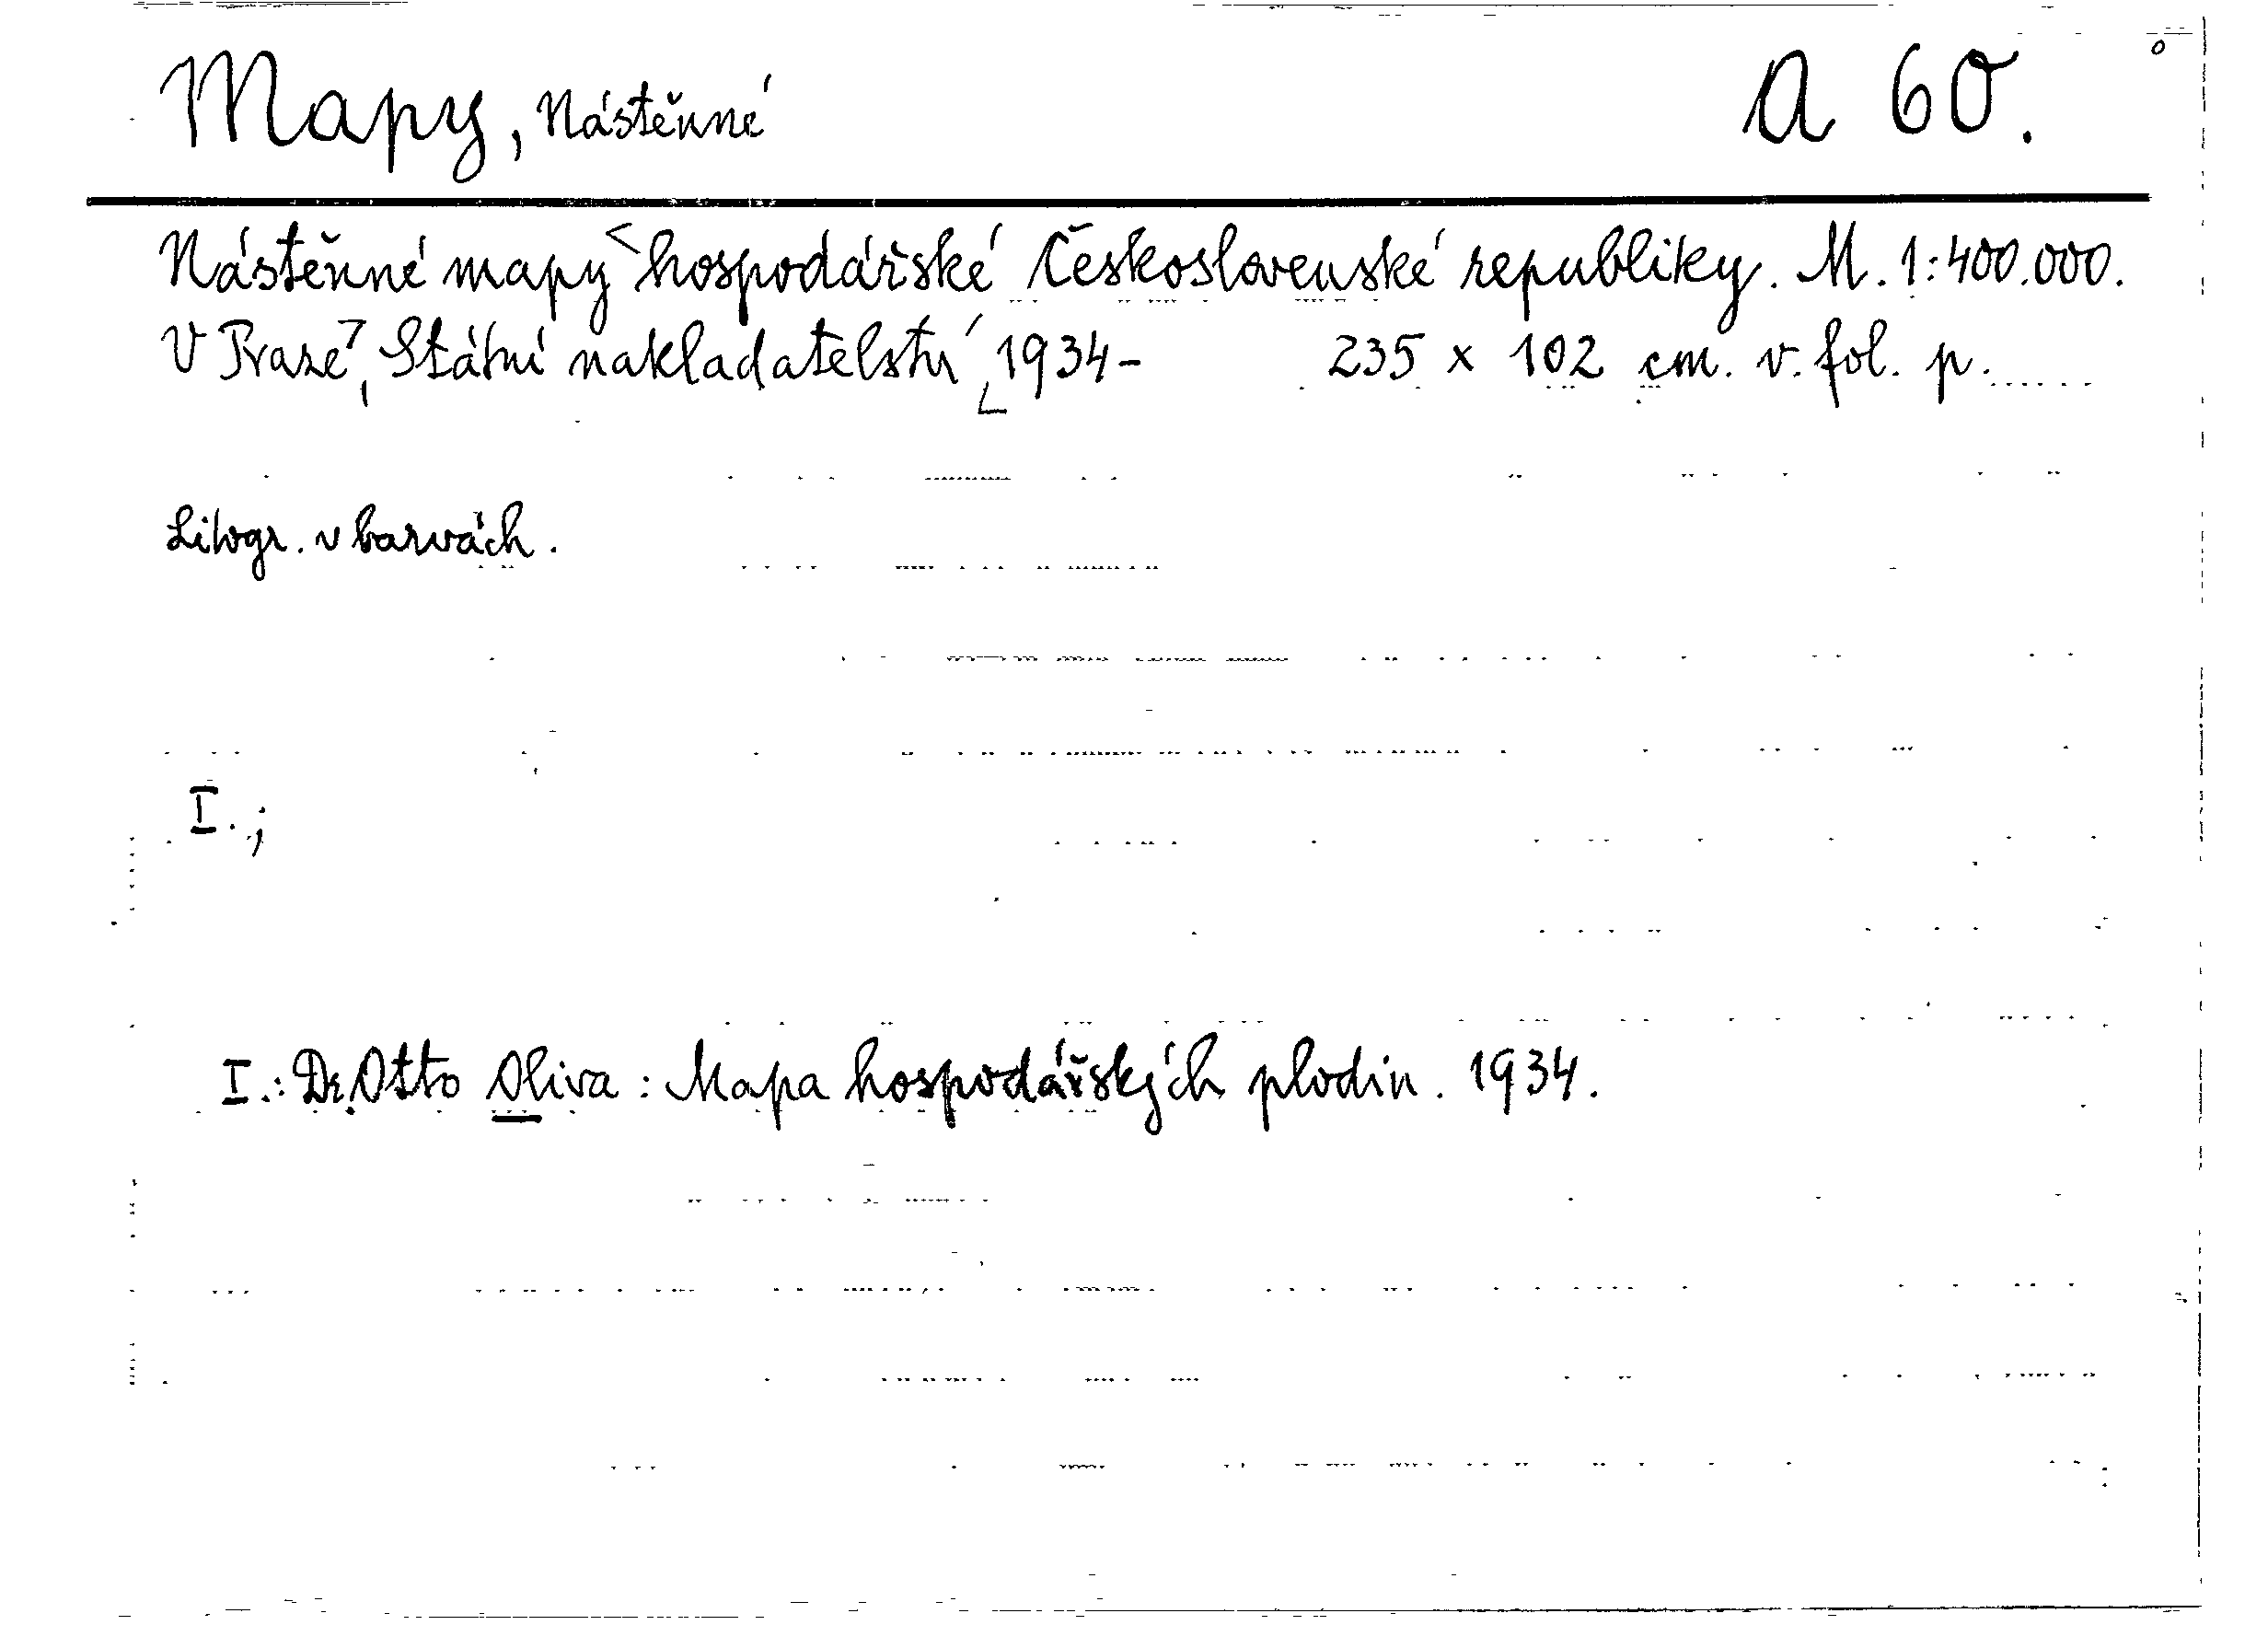 Mapy, Nástěnné A 60.
Nástěnné mapy hospodářské Československé republiky. M. 1:400.000.
V Praze, Státní nakladatelství, 1934- 235 x 102 cm. v. fol. p.
Litogr. v barvách.
I.;
I.: Dr. Otto Oliva: Mapa hospodářských plodin. 1934.